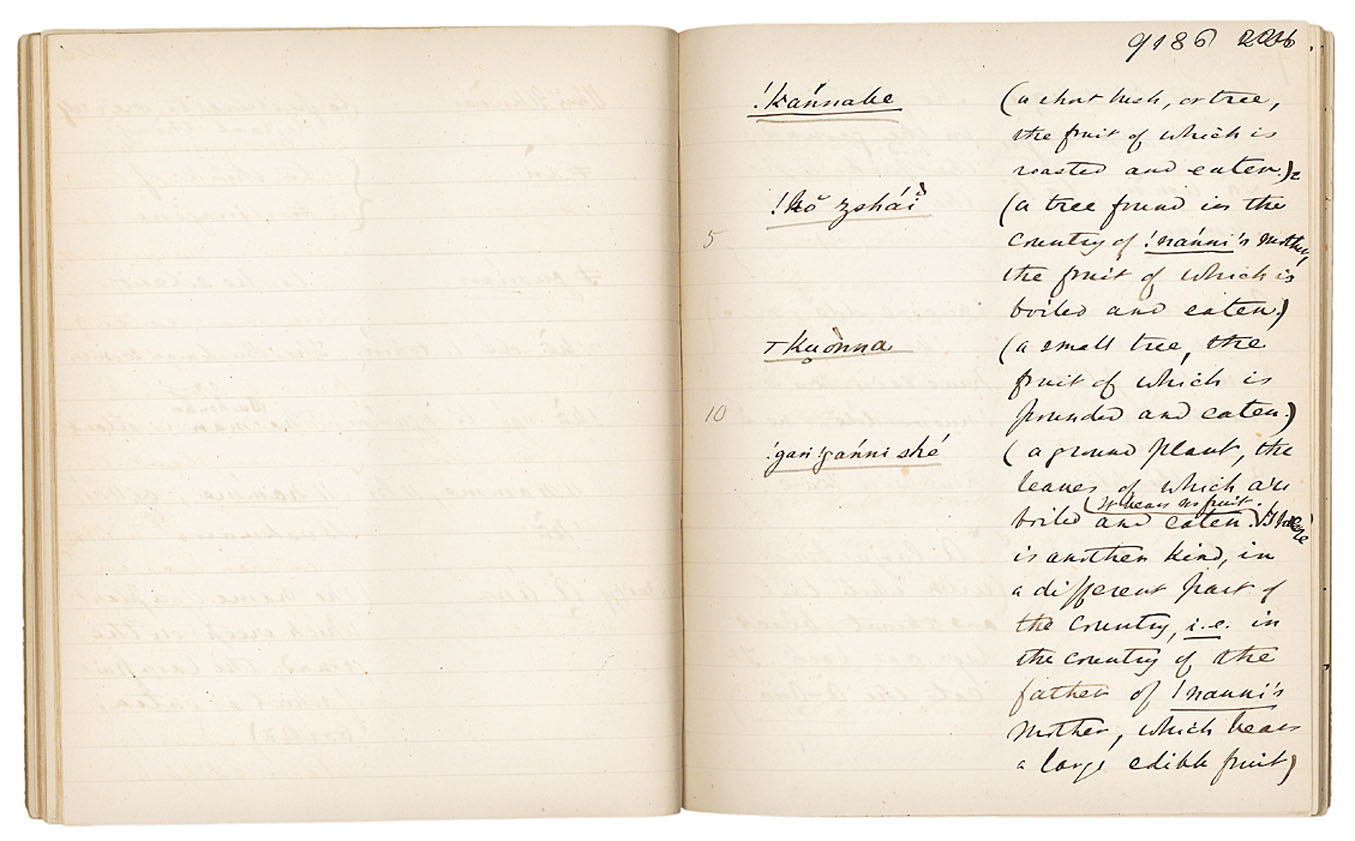 9186
!kánnabe (a short bush, or tree,
the fruit of which is
roasted and eaten.)
!kŏ zshái (a tree found in the
5 country of !nánni's mother,
the fruit of which is
boiled and eaten.)
(a small tree, the
fruit of which is
10 pounded and eaten.)
shé (a ground plant, the
leaves of which are
(It bears no fruit.)
boiled and eaten. There
is another kind, in
a different part of
the country, i.e. in
the country of the
father of !nanni's
mother, which bears
a large edible fruit)